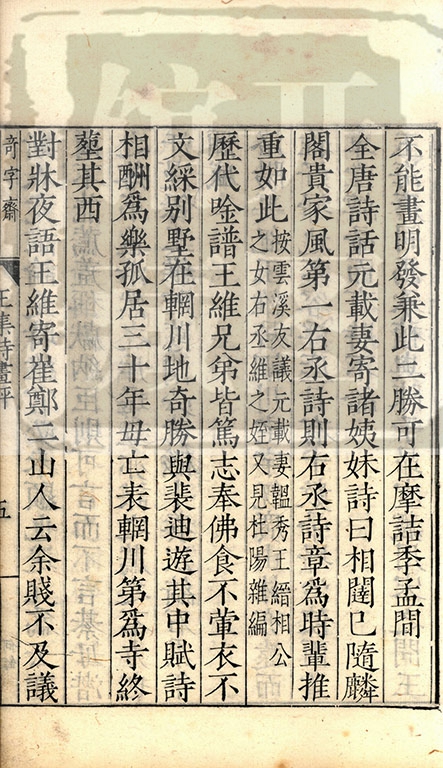 不能畫明發兼此二勝可在摩詰季孟間
全唐詩話元載妻寄諸姨妹詩曰相國已隨麟
閣貴家風第一右丞詩則右丞詩章爲時輩推
重如此按雲溪友議元載妻韞秀王縉相公
之女右丞維之姪又見杜陽雜編
歷代唫譜王維兄弟皆篤志奉佛食不葷衣不
文綵别墅在輞川地奇勝與裴迪遊其中賦詩
相酬爲樂孤居三十年毋亡表輞川第爲寺終
塟其西
對牀夜語王維寄崔鄭二山人云余賤不及議
奇字齋
王集詩畫評
五